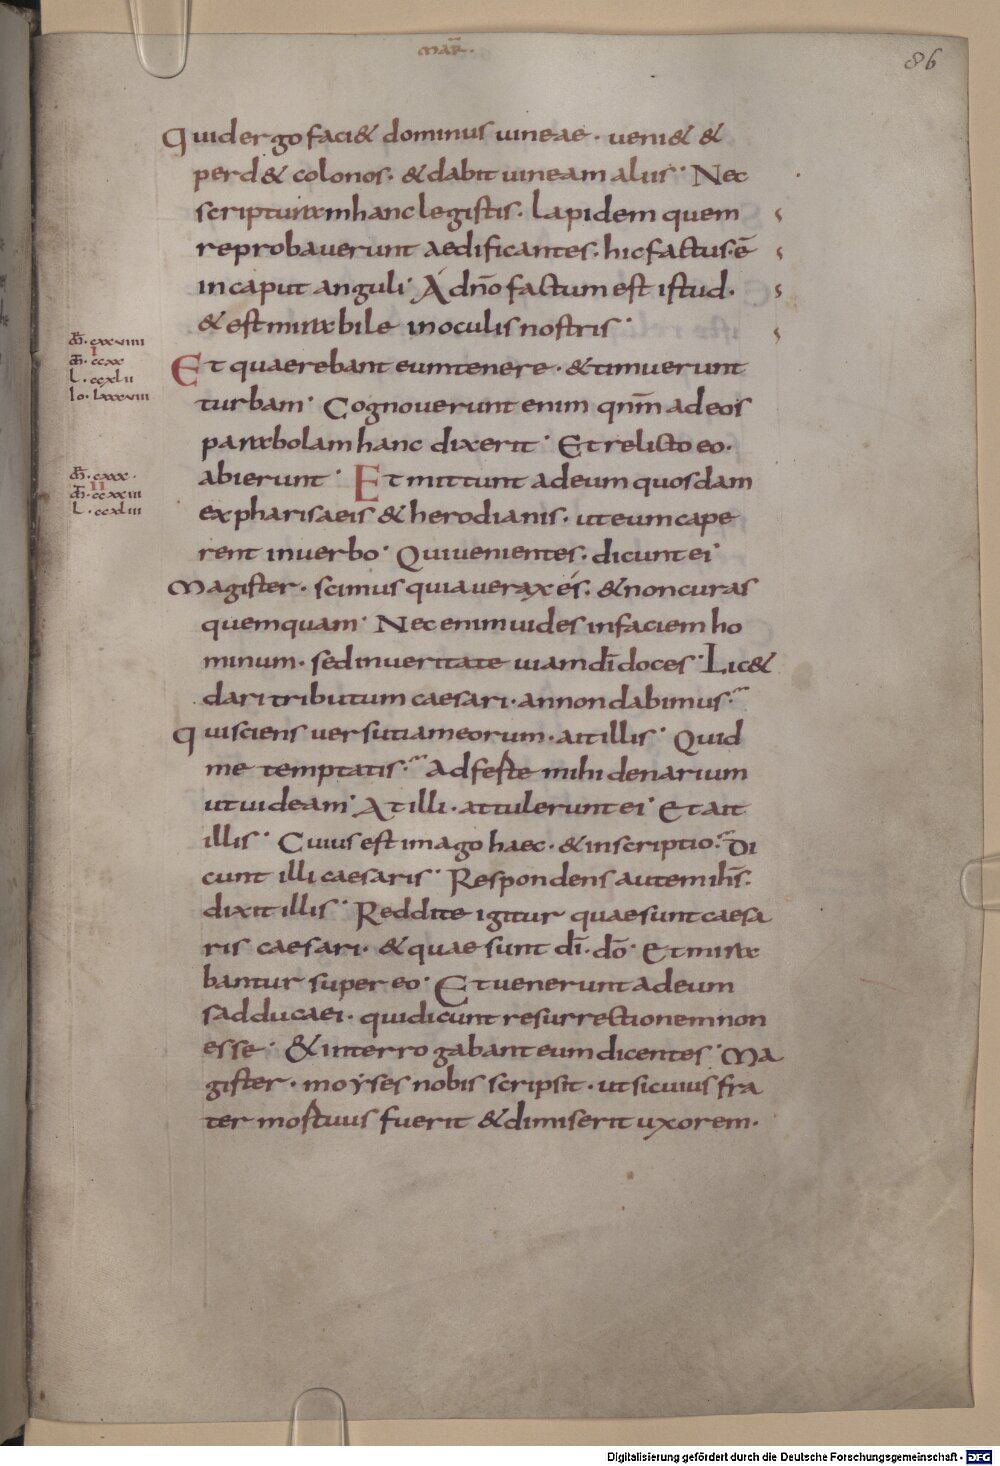 Mar̄.
86
Quid ergo faci& dominus uineae· ueni& &
perd& colonos· & dabit uineam aliis· Nec
scripturam hanc legistis· Lapidem quem
reprobauerunt aedificantes· hic factus· ē
in caput anguli· A dn̄o factum est istud·
& est mirabile in oculis nostris·
Et quaerebant eum tenere· & timuerunt
turbam· Cognouerunt enim qnm̄ ad eos
parabolam hanc dixerit· Et relicto eo·
abierunt· Et mittunt ad eum quosdam
ex pharisaeis & herodianis· ut eum cape
rent in uerbo· Qui uenientes· dicunt ei·
Magister· scimus quia uerax és· & non curas
quemquam· Nec enim uides in faciem ho
minum· sed in ueritate uiam dī doces· Lic&
dari tributum caesari· an non dabimus·
Qui sciens uersutiam eorum· ait illis· Quid
me temptatis· Adferte mihi denarium
ut uideam· At illi· attulerunt ei· Et ait
illis· Cuius est imago haec· & inscriptio· Di
cunt illi caesaris· Respondens autem ihs̄·
dixit illis· Reddite igitur quae sunt caesa
ris caesari· & quae sunt dī· dō· Et mira
bantur super eo· Et uenerunt ad eum
sadducaei· qui dicunt resurrectionem non
esse· & interrogabant eum dicentes· Ma
gister· moyses nobis scripsit· ut si cuius fra
ter mortuus fuerit & dimiserit uxorem·
m̄· cxxuiiii
I
m̄· ccxx
L· ccxlii
Io· lxxxuiii
m̄· cxxx·
II
m̄· ccxxiii
L· ccxliii
Digitalisierung gefördert durch die Deutsche Forschungsgemeinschaft - DFG